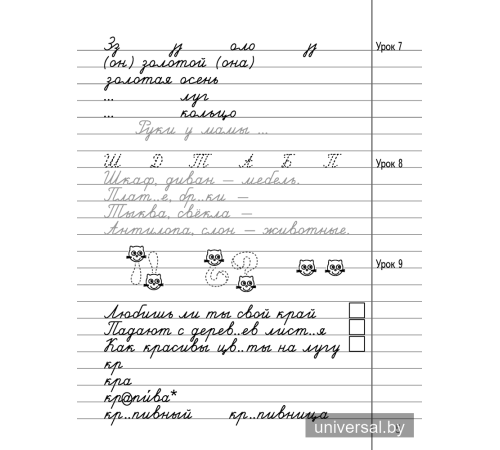 Зз у оло у Урок 7
(он) золотой (она)
золотая осень
... луг
... кольцо
Руки у мамы ...
Ш Д Т А Б П Урок 8
Шкаф, диван — мебель.
Плат..е, бр..ки —
Тыква, свёкла —
Антилопа, слон — животные.
Урок 9
Любишь ли ты свой край
Падают с дерев..ев лист..я
Как красивы цв..ты на лугу
кр
кра
кр@пи́ва*
кр..пивный кр..пивница
universal.by